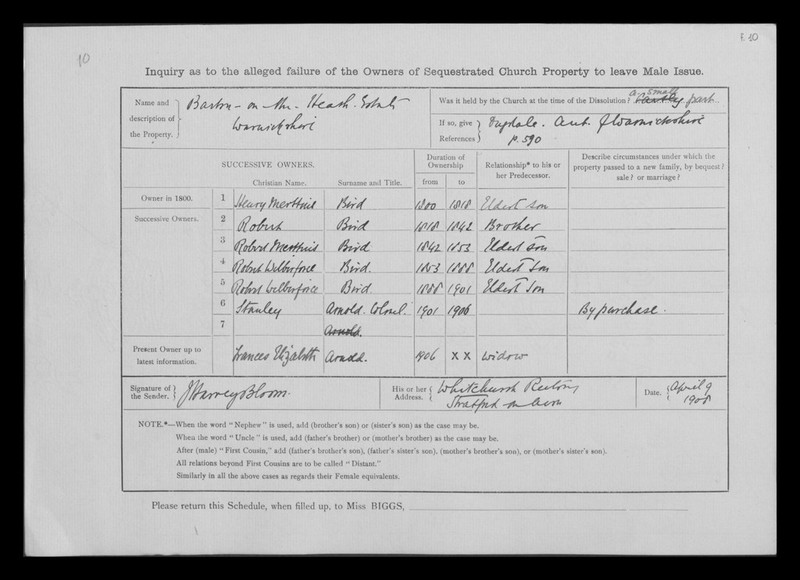 f. 10
10
Inquiry as to the alleged failure of the Owners of Sequestrated Church Property to leave Male Issue.
Name and description of the Property. Barton-on-the-Heath Estate Warwickshire
Was it held by the Church at the time of the Dissolution? a small part.
If so, give References Dugdale. Ant. of Warwickshire p. 590
SUCCESSIVE OWNERS.
Christian Name. Surname and Title.
Duration of Ownership
from to
Relationship* to his or her Predecessor.
Describe circumstances under which the property passed to a new family, by bequest? sale? or marriage?
Owner in 1800. 1 Henry Merttins Bird 1800 1818 Eldest son
Successive Owners. 2 Robert Bird 1818 1842 Brother
3 Robert Merttins Bird 1842 1853 Eldest Son
4 Robert Wilberforce Bird. 1853 1888 Eldest Son
5 Robert Wilberforce Bird 1888 1901 Eldest Son
6 Stanley Arnold. Colonel. 1901 1906 By purchase.
7 Arnold.
Present Owner up to latest information. Frances Elizabeth Arnold. 1906 x x Widow
Signature of the Sender. J Harvey Bloom.
His or her Address. Whitchurch Rectory Stratford on Avon
Date. April 9 1908
NOTE.*—When the word "Nephew" is used, add (brother's son) or (sister's son) as the case may be.
When the word "Uncle" is used, add (father's brother) or (mother's brother) as the case may be.
After (male) "First Cousin," add (father's brother's son), (father's sister's son), (mother's brother's son), or (mother's sister's son).
All relations beyond First Cousins are to be called "Distant."
Similarly in all the above cases as regards their Female equivalents.
Please return this Schedule, when filled up, to Miss BIGGS,